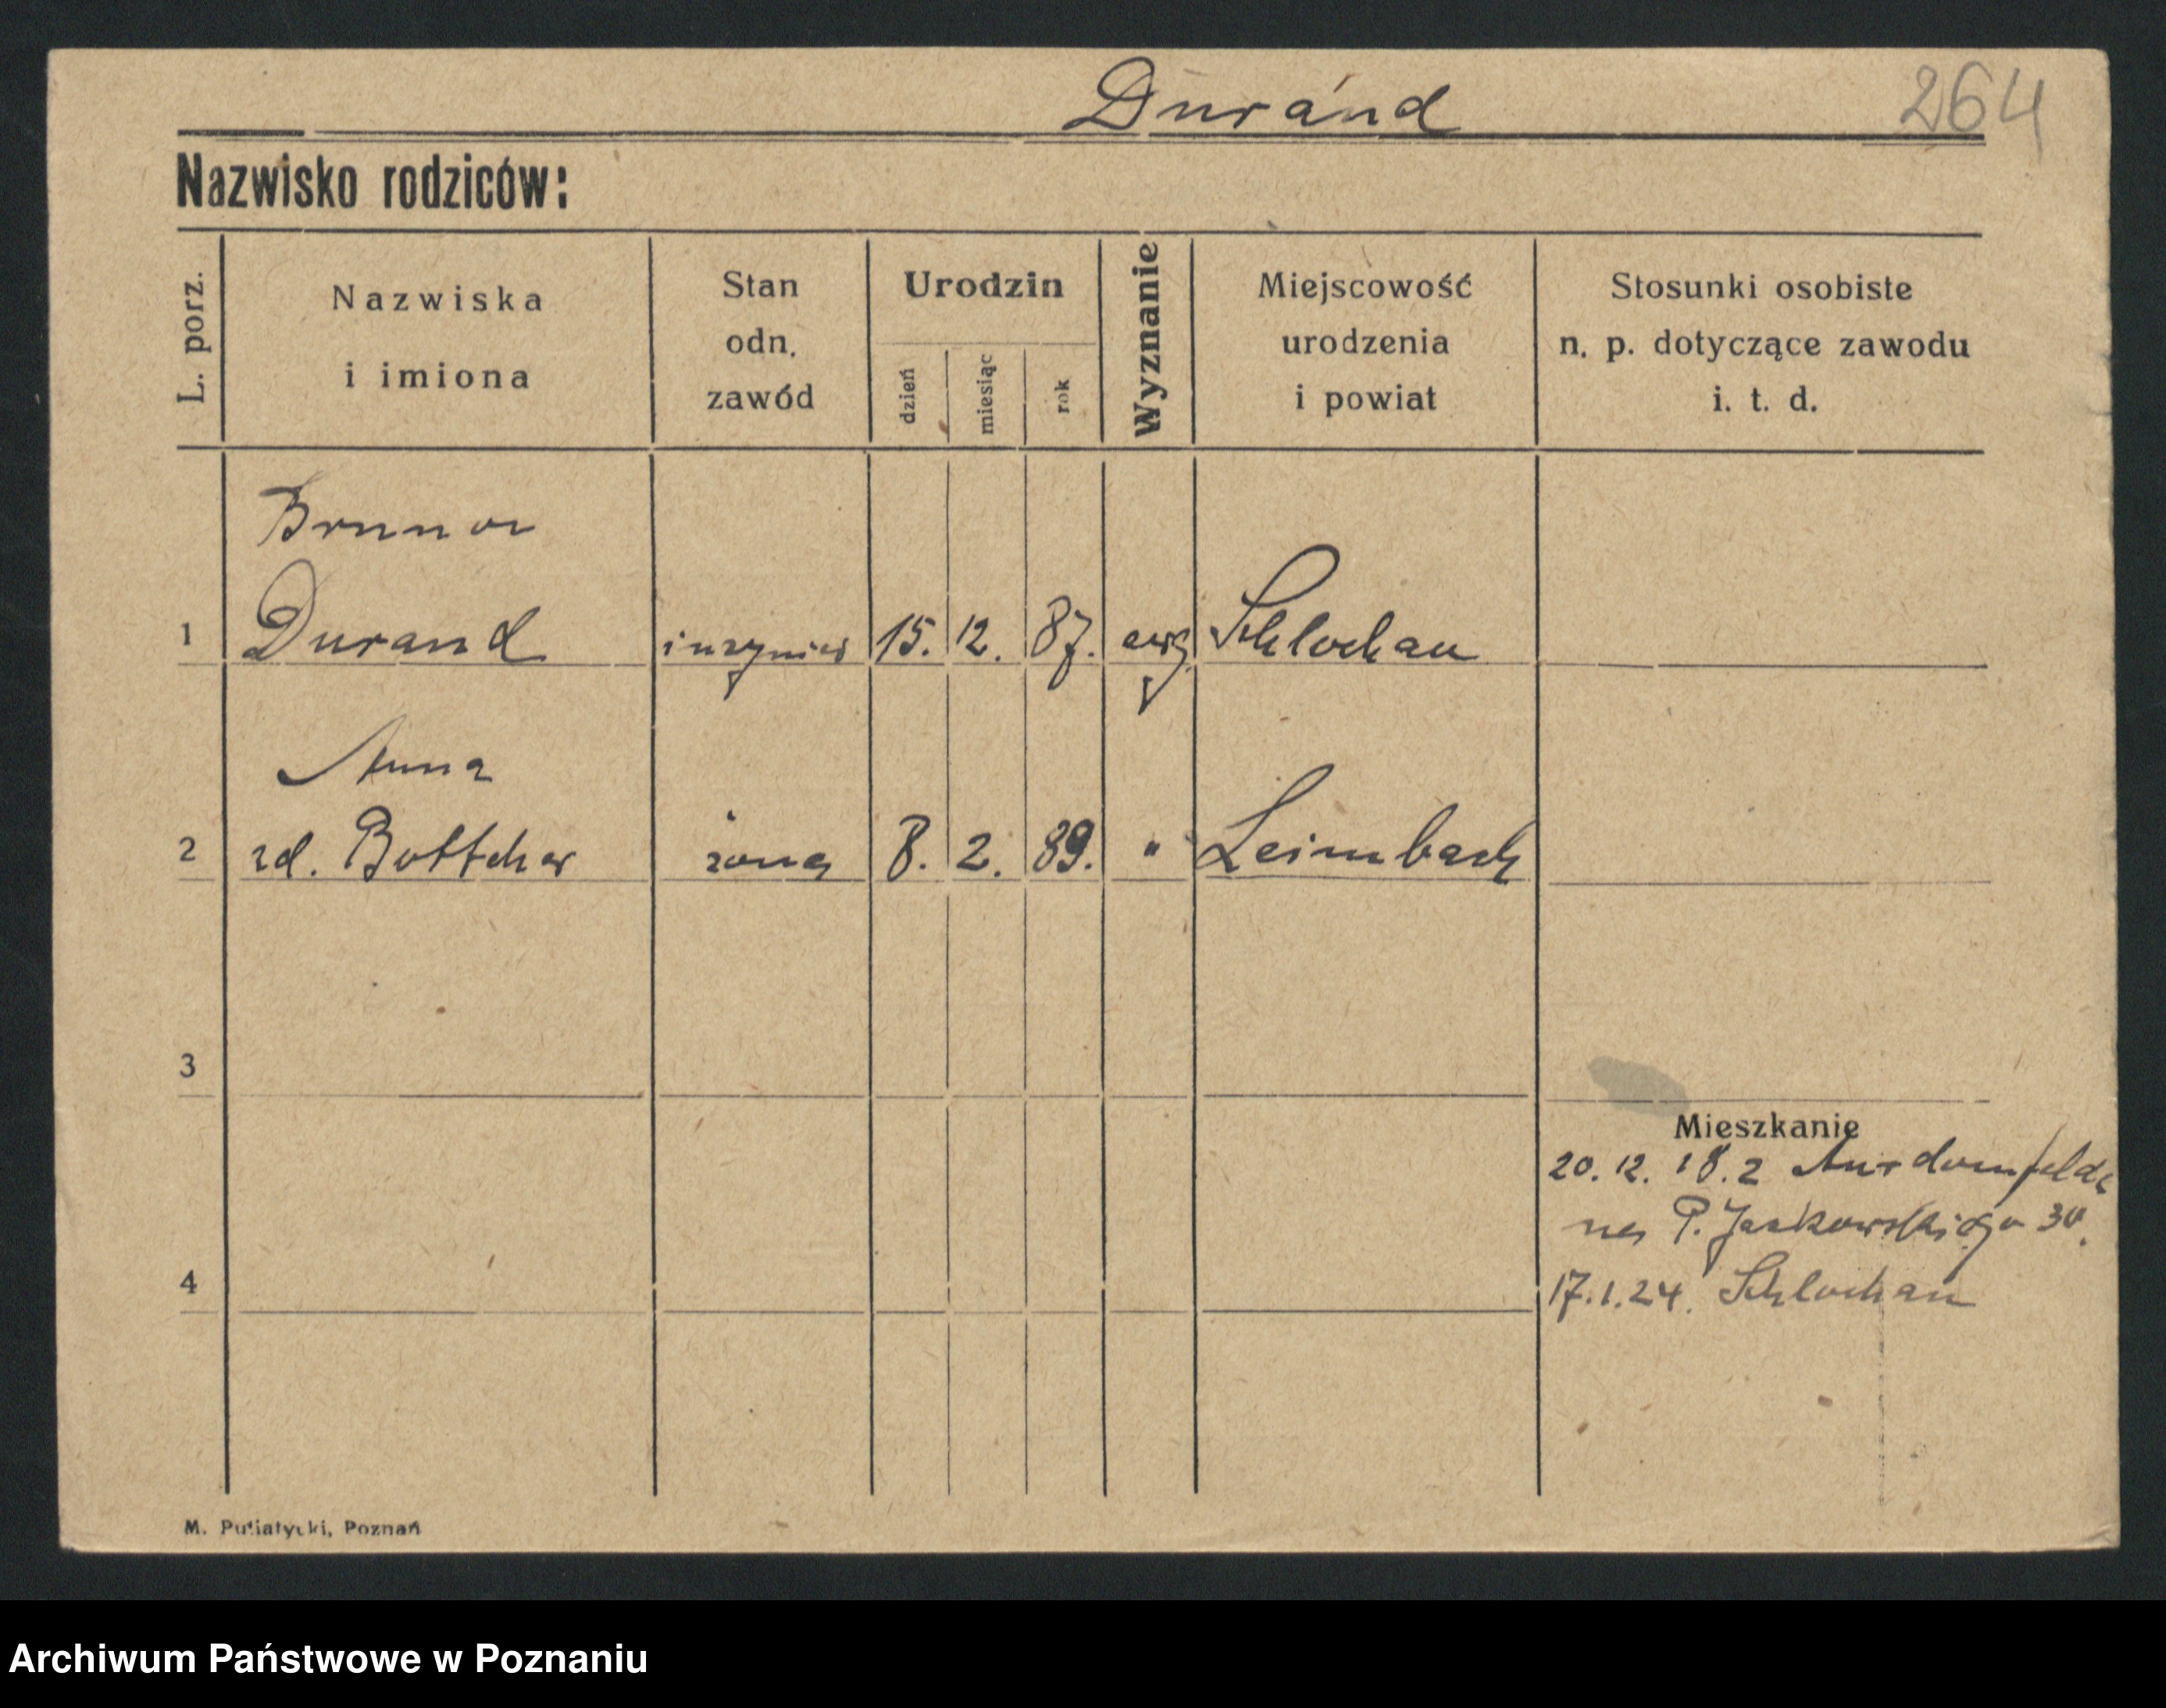 Duránd
264
Nazwisko rodziców:
L. porz.
Nazwiska
i imiona
Stan
odn.
zawód
Urodzin
dzień
miesiąc
rok
Wyznanie
Miejscowość
urodzenia
i powiat
Stosunki osobiste
n. p. dotyczące zawodu
i. t. d.
Brunon
1 Durand inżynier 15. 12. 87. ewg Schlochau
Anna
2 zd. Bottcher żona 8. 2. 89. " Leimbach
3
Mieszkanie
20. 12.
na P. Jackowskiego 30.
4
17.1.24. Schlochau
M. Putiatycki, Poznań
Archiwum Państwowe w Poznaniu